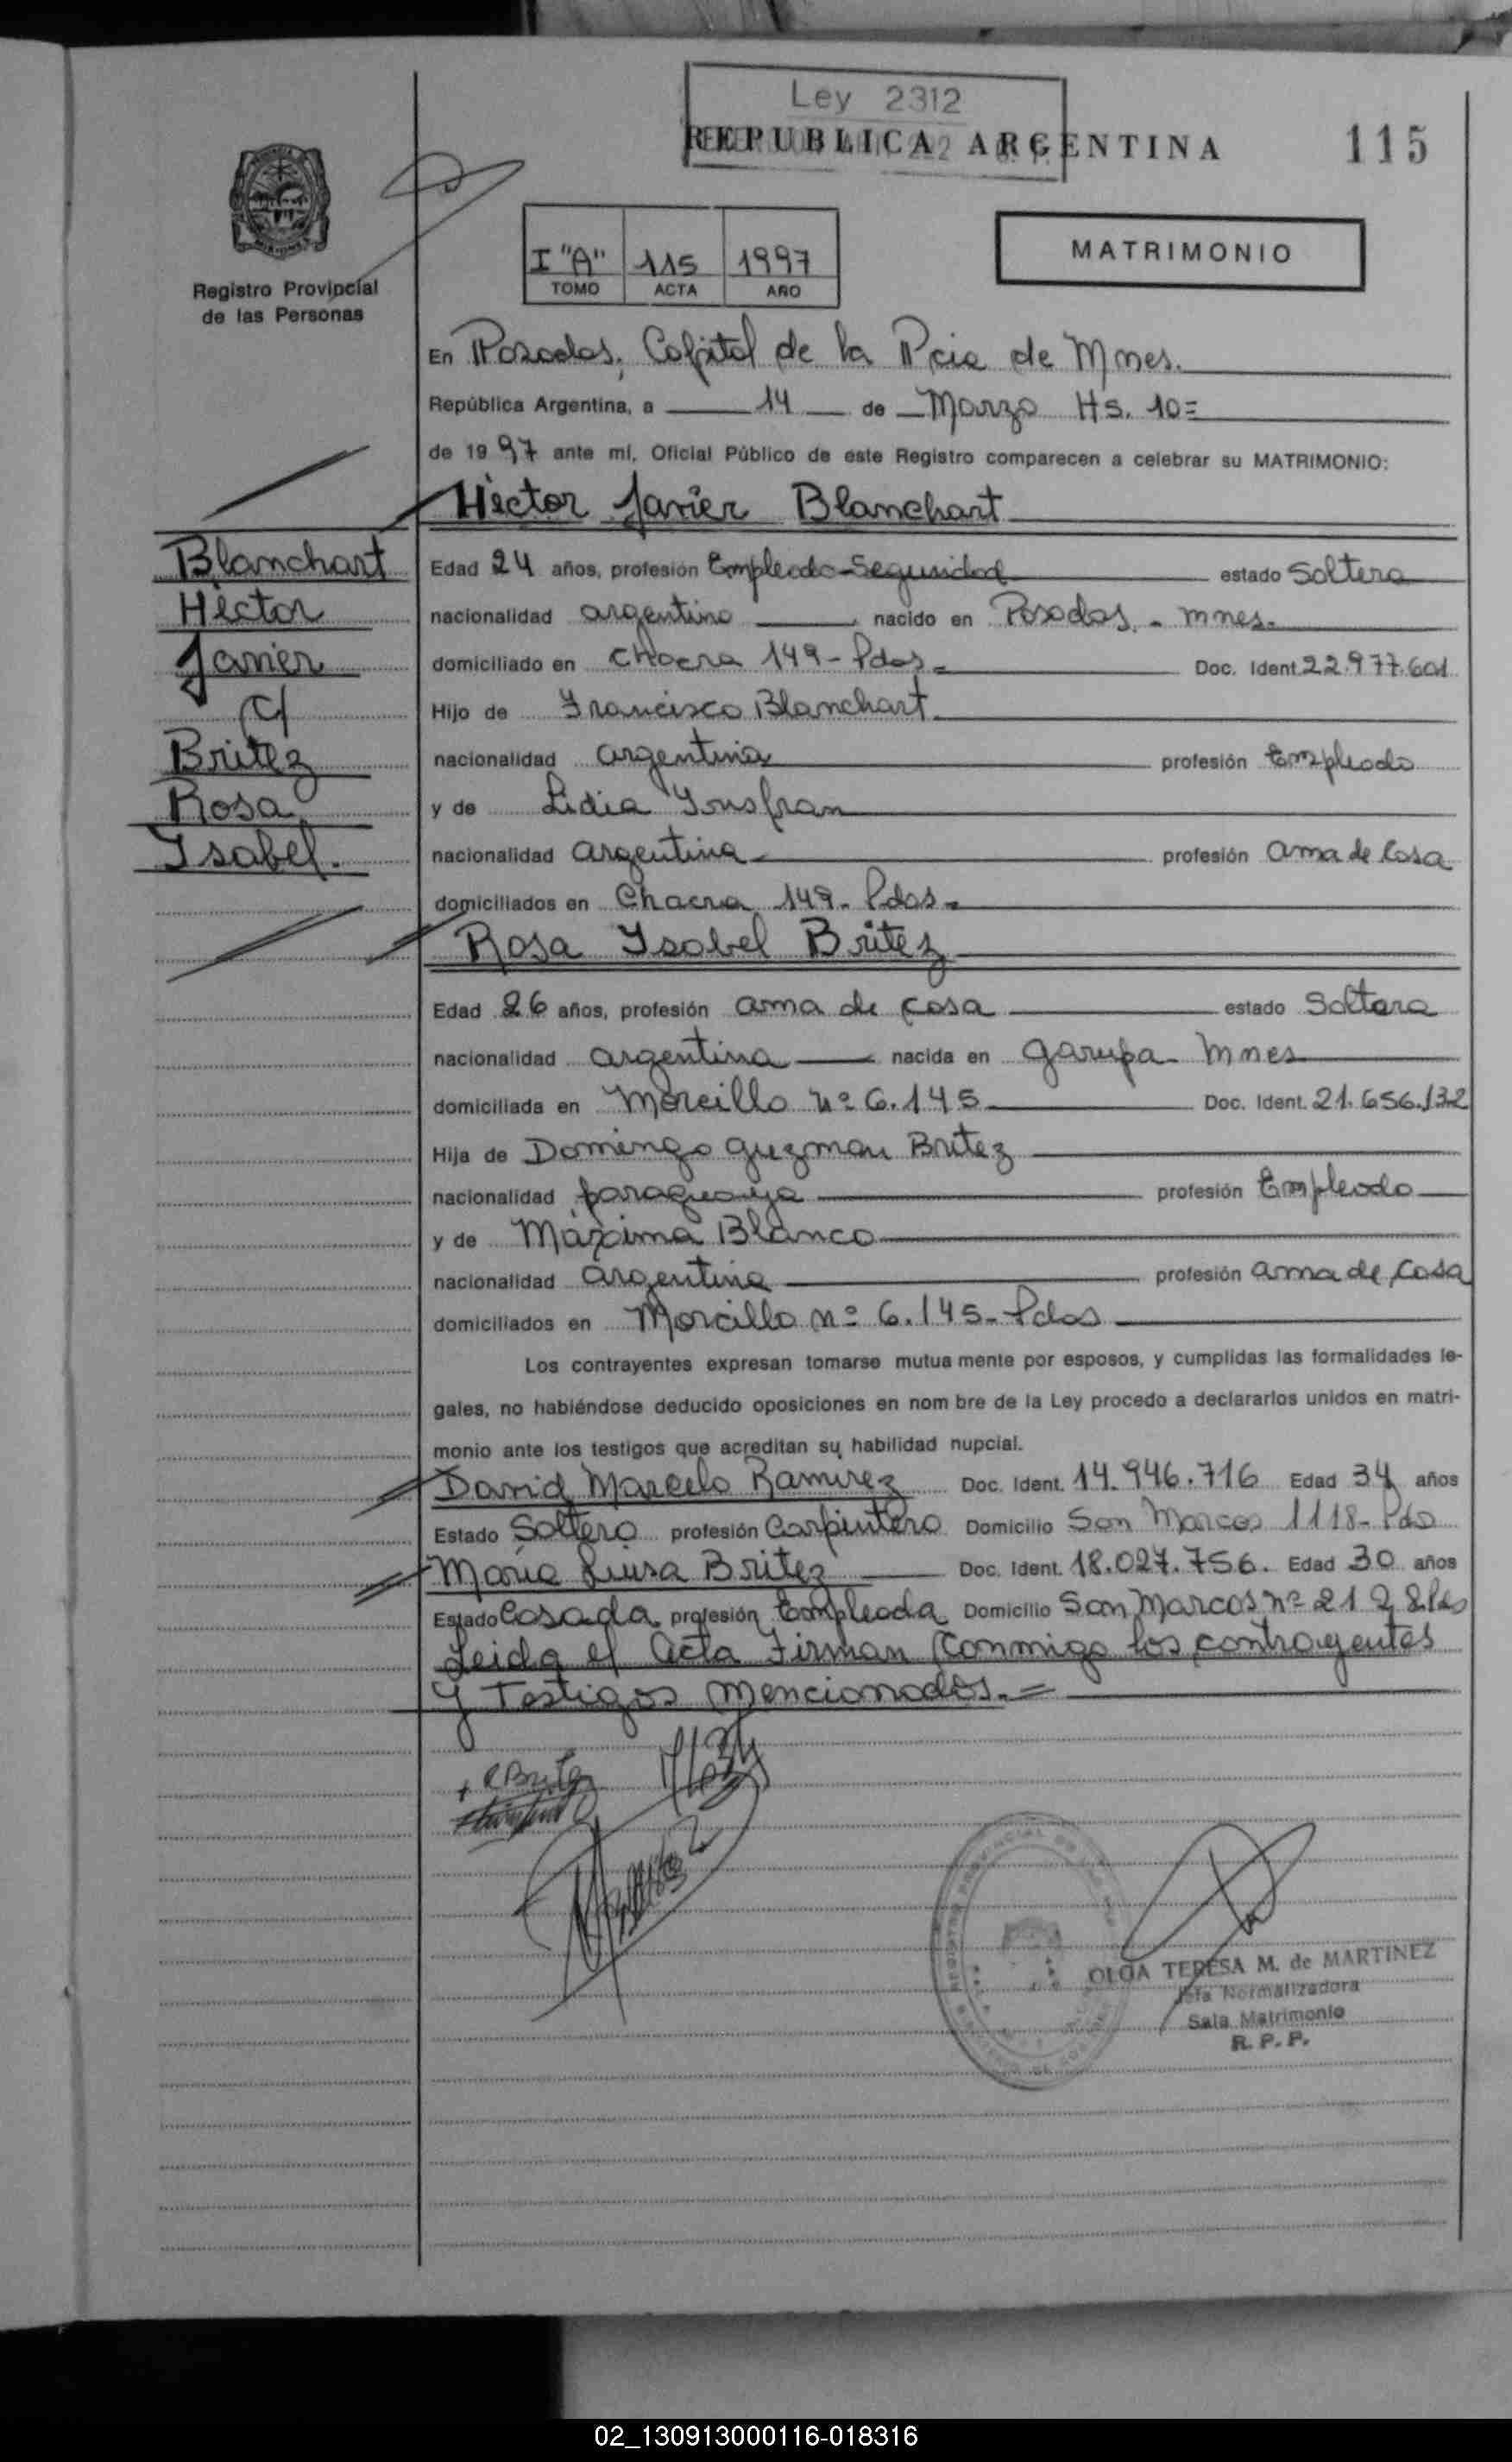 Ley 2312
REPUBLICA ARGENTINA
115
MATRIMONIO
I "A" 115 1997
TOMO ACTA AÑO
Registro Provincial
de las Personas
En Posadas, Capital de la Pcia de Mnes.
República Argentina, a 14 de Marzo Hs. 10=
de 1997 ante mí, Oficial Público de este Registro comparecen a celebrar su MATRIMONIO:
Héctor Javier Blanchart
Blanchart
Héctor
Javier
c/
Britez
Rosa
Isabel.
Edad 24 años, profesión Empleado-Seguridad estado Soltero
nacionalidad argentino, nacido en Posadas. - mnes.
domiciliado en chacra 149 - Pdas. Doc. Ident. 22.977.601
Hijo de Francisco Blanchart
nacionalidad argentina profesión Empleado
y de Lidia Ynsfran
nacionalidad argentina profesión ama de Casa
domiciliados en Chacra 149. Pdas.
Rosa Ysabel Britez
Edad 26 años, profesión ama de casa estado Soltera
nacionalidad argentina nacida en garupa - Mnes
domiciliada en Morcillo nº 6.145 Doc. Ident. 21.656.132
Hija de Domingo guzman Britez
nacionalidad paraguaya profesión Empleado
y de Máxima Blanco
nacionalidad argentina profesión ama de casa
domiciliados en Morcillo nº 6.145 - Pdas
Los contrayentes expresan tomarse mutua mente por esposos, y cumplidas las formalidades le-
gales, no habiéndose deducido oposiciones en nom bre de la Ley procedo a declararlos unidos en matri-
monio ante los testigos que acreditan su habilidad nupcial.
David Marcelo Ramirez Doc. Ident. 14.946.716 Edad 34 años
Estado Soltero profesión Carpintero Domicilio San Marcos 1118 - Pds
María Luisa Britez Doc. Ident. 18.027.756. Edad 30 años
Estado Casada profesión Empleada Domicilio San Marcos nº 2128 Pds
Leida el Acta Firman Conmigo los contrayentes
y Testigos mencionados. =
R Britez
OLGA TERESA M. de MARTINEZ
Jefa Normalizadora
Sala Matrimonio
R. P. P.
02_130913000116-018316